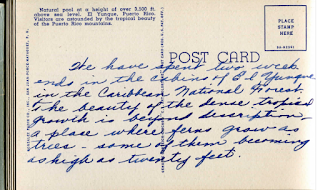 Natural pool at a height of over 3,500 ft.
above sea level. El Yunque, Puerto Rico.
Visitors are astounded by the tropical beauty
of the Puerto Rico mountains.
PLACE
STAMP
HERE
POST CARD
We have spent two week
ends in the cabins of El Yunque
in the Caribbean National Forest.
The beauty of the dense tropical
growth is beyond description—
a place where ferns grow as
trees – some of them becoming
as high as twenty feet.